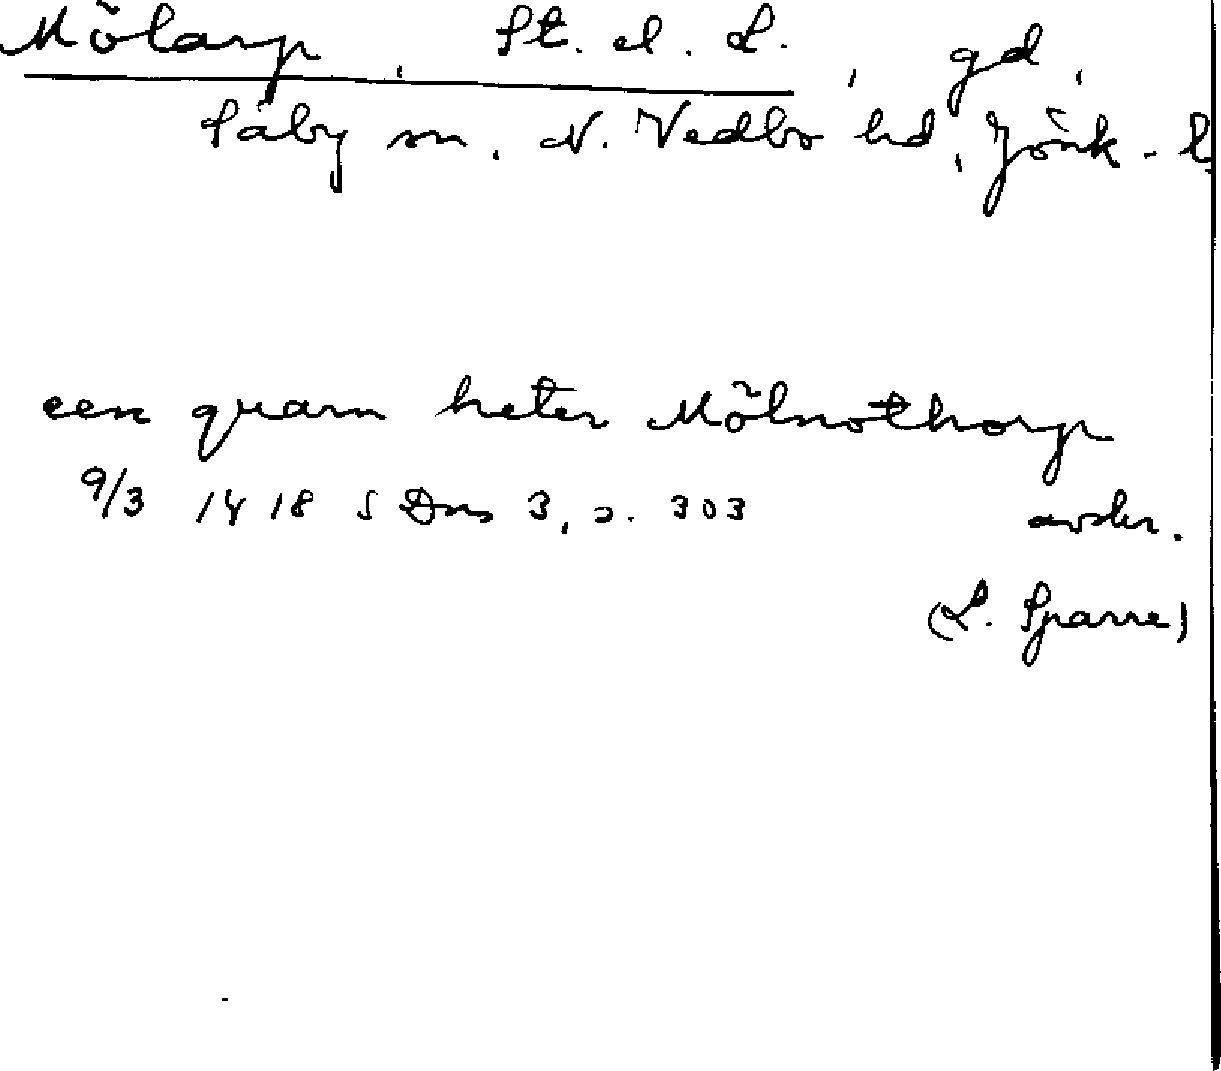 Mölarp, St. el. L., gd,
Säby sn, N. Vedbo hd, Jönk. l.
een quarn heter Mölnothorp
9/3 1418 SDns 3, s. 303 avskr.
(L. Sparre)